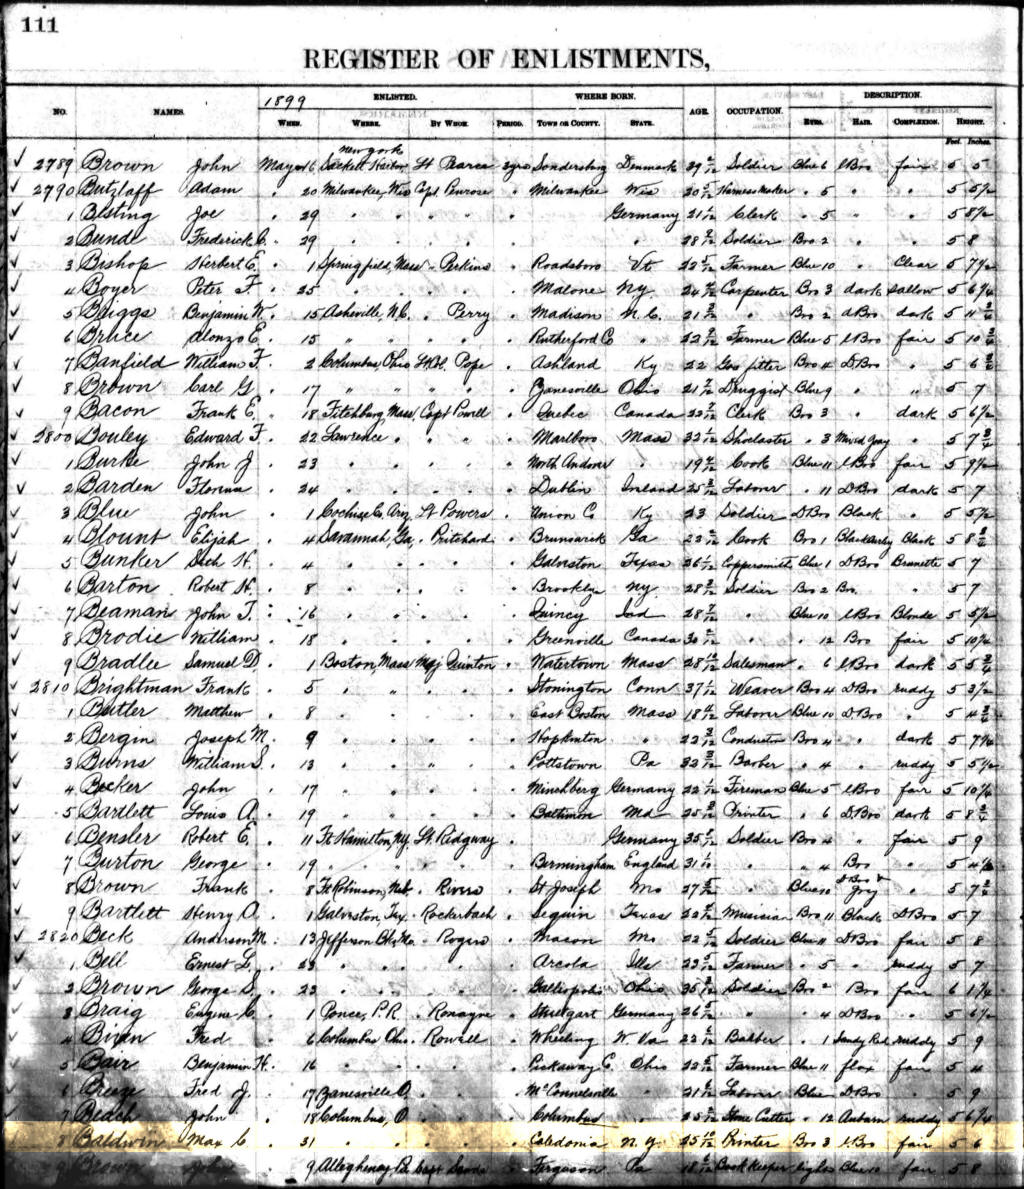 111
REGISTER OF ENLISTMENTS,
NO. NAMES. 1899 ENLISTED. WHEN. WHERE. BY WHOM. PERIOD. WHERE BORN. TOWN OR COUNTY. STATE. AGE. OCCUPATION. DESCRIPTION. EYES. HAIR. COMPLEXION. HEIGHT. Feet. Inches.
New York
2789 Brown John May 16 Sackett Harbor Lt 3yrs Denmark 29 Soldier Blue 6 lBro fair 5 5
2790 Butzlaff Adam " 20 Milwaukee, Wis Capt Penrose " Milwaukee Wis 20 Harnessmaker " 5 " " 5 5½
1 Bisting Joe " 29 " " " " Germany 21 Clerk " 5 " " 5 8½
2 Bunde Frederick C. " 29 " " " " " 28 Soldier Bro 2 " " 5 8
3 Bishop Herbert E. " 1 Springfield, Mass " Perkins " Roadsboro Vt 22 Farmer Blue 10 " Clear 5 7½
4 Boyer Peter F. " 25 " " " " Malone NY. 24 Carpenter Bro 3 dark sallow 5 6¼
5 Briggs Benjamin W. " 15 Asheville, N.C. " Perry " Madison N.C. 21 " Bro 2 dBro dark 5 11
6 Bruce Alonzo E. " 15 " " " " Rutherford C " 22 Farmer Blue 5 lBro fair 5 10
7 Banfield William F. " 2 Columbus, Ohio Lt Col. Pope " Ashland Ky 22 Gas fitter Bro 4 D.Bro " 5 6
8 Brown Carl G. " 17 " " " " Zanesville Ohio 21 Druggist Blue 9 " " 5 7
9 Bacon Frank E. " 18 Fitchburg, Mass, Capt Powell " Quebec Canada 22 Clerk Bro 3 " dark 5 6½
2800 Bouley Edward F. " 22 Lawrence " " " " Marlboro Mass 32 Shoelaster " 3 Mixed Gray " 5 7¾
1 Burke John J. " 23 " " " " North Andover " 19 Cook Blue 11 lBro fair 5 9½
2 Barden " 24 " " " " Dublin Ireland 25 Laborer " 11 D.Bro dark 5 7
3 Blue John " 1 Cochise Co, Ariz, Lt Powers " Union C Ky 23 Soldier D.Bro Black " 5 5½
4 Blount Elijah " 4 Savannah, Ga, " Pritchard " Brunswick Ga 22 Cook Bro 1 Black Black 5 8
5 Bunker Seth H. " 4 " " " " Galveston Texas 26 Coppersmith Blue 1 D.Bro Brunette 5 7
6 Barton Robert H. " 8 " " " " Brooklyn NY 28 Soldier Bro 2 Bro. 5 7
7 Beaman John T. " 16 " " " " Quincy Ind 28 " Blue 10 lBro Blonde 5 5½
8 Brodie William " 18 " " " " Greenville Canada 30 " " 12 Bro fair 5 10¼
9 Bradlee Samuel D. " 1 Boston, Mass Maj Quinton " Watertown Mass 28 Salesman " 6 lBro dark 5 5¾
2810 Brightman Frank " 5 " " " " Stonington Conn 37 Weaver Bro 4 D.Bro ruddy 5 3½
1 Butler Matthew " 8 " " " " East Boston Mass 18 Laborer Blue 10 D.Bro " 5 4
2 Bergin Joseph M. " 9 " " " " Hopkinton " 22 Conductor Bro 4 " dark 5 7¼
3 Burns William S. " 13 " " " " Pottstown Pa 32 Barber " 4 " ruddy 5 5½
4 Becker John " 17 " " " " Minchberg Germany 22 Fireman Blue 5 lBro fair 5 10¼
5 Bartlett Louis A. " 19 " " " " Baltimore Md 25 Printer " 6 D.Bro dark 5 8
6 Bensler Robert E. " 11 Ft Hamilton, Ny. Lt. Ridgway " Germany 35 Soldier Bro 4 " fair 5 9
7 Burton George " 19 " " " " Birmingham England 31 " " 4 Bro " 5 4½
8 Brown Frank " 8 Ft Robinson, Neb. " Rivers " St Joseph Mo 27 " Blue 10 dBro & Gray " 5 7
9 Bartlett Henry A. " 1 Galveston, Tex. " Rockerbach " Seguin Texas 22 Musician Bro 11 Black D.Bro 5 7
2820 Beck Anderson M. " 13 Jefferson Bks, Mo. " Rogers " Macon Mo 22 Soldier Blue 11 D.Bro fair 5 8
1 Bell Ernest L. " 23 " " " " Arcola Ills 23 Farmer " 5 " ruddy 5 7
2 Brown George S. " 23 " " " " Galliopolis Ohio 35 Soldier Bro 2 Bro fair 6 1¼
3 Braig Eugene C. " 1 Ponce, P.R. " Ronayne " Stuttgart Germany 26 " " 4 D.Bro " 5 6½
4 Fred " 6 Columbus Ohio. " Rowell " Wheeling W. Va 22 Barber " 1 Sandy Red ruddy 5 9
5 Bair Benjamin H. " 16 " " " " Pickaway C. Ohio 22 Farmer Blue 11 flax fair 5 4
6 Breeze Fred J. " 17 Zanesville O. " " " McConnelsville " 21 Laborer Blue D.Bro " 5 9
7 Beach John " 18 Columbus, O " " " Columbus " 25 Stone Cutter " 12 Auburn ruddy 5 6¼
8 Baldwin Max C. " 31 " " " " Caledonia N.Y. 25 Printer Bro 3 lBro fair 5 6
9 Brown John " 9 Allegheny, Pa Capt " Ferguson Pa 18 Book Keeper fair 5 8